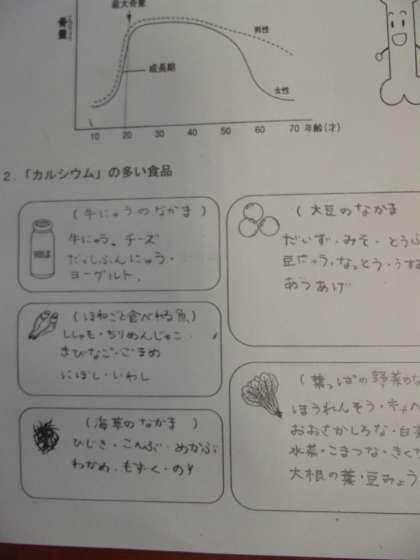 最大骨量
骨量
男性
成長期
女性
10 20 30 40 50 60 70 年齢(才)
2.「カルシウム」の多い食品
(牛にゅうのなかま)
牛にゅう。チーズ
だっしふんにゅう・
ヨーグルト.
(ほねごと食べれる魚)
ししゃも・ちりめんじゃこ
きびなご・ごまめ
にぼし・いわし
(海草のなかま)
ひじき・こんぶ・めかぶ
わかめ・もずく・のり
(大豆のなかま
だいず・みそ・とうふ
なっとう・うす
あつあげ
(葉っぱの野菜のな
ほうれんそう・キャベ
おおさかしろな・白
水菜・こまつな・きくな
大根の葉・豆みょう